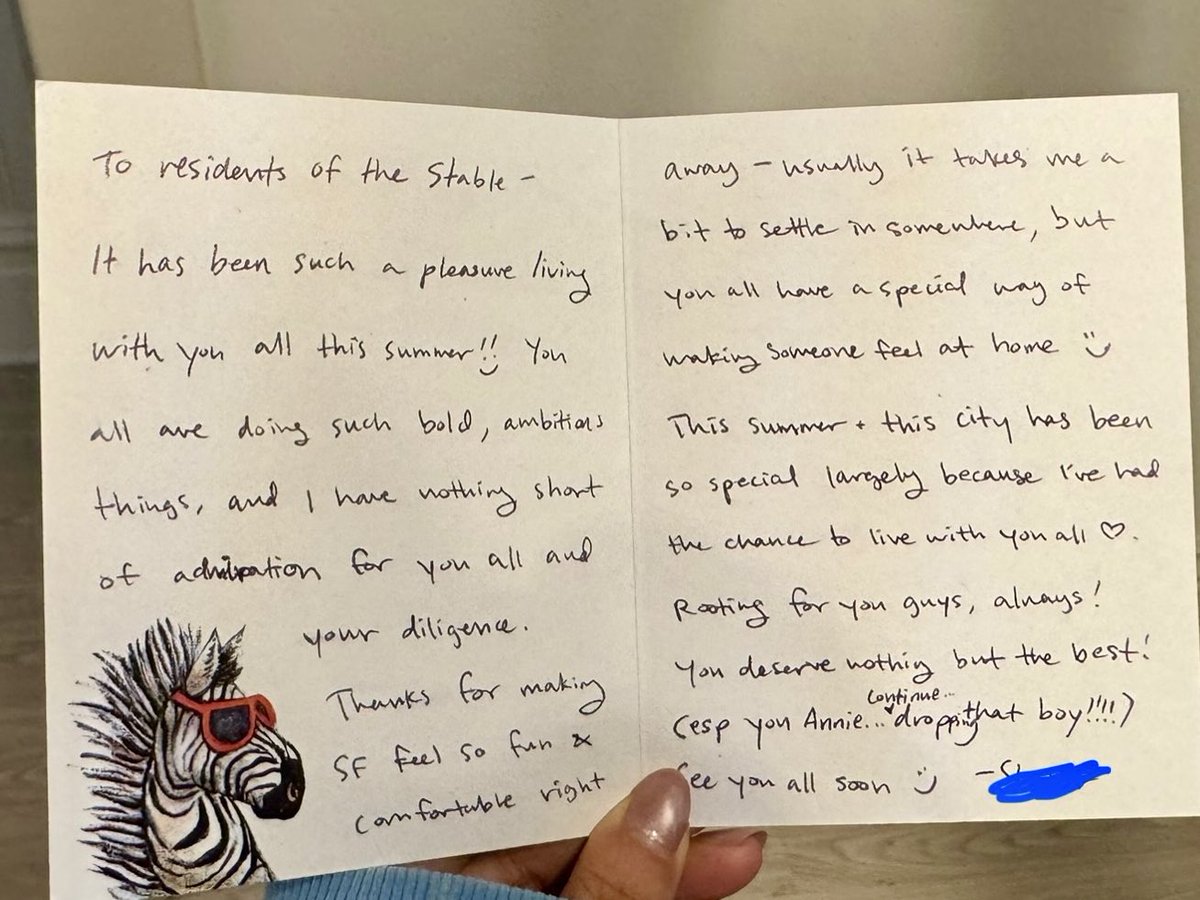 To residents of the Stable -
It has been such a pleasure living
with you all this summer!! You
all are doing such bold, ambitious
things, and I have nothing short
of admiration for you all and
your diligence.
Thanks for making
SF feel so fun &
comfortable right
away - usually it takes me a
bit to settle in somewhere, but
you all have a special way of
making someone feel at home :)
This summer + this city has been
so special largely because I've had
the chance to live with you all ♡.
Rooting for you guys, always!
You deserve nothing but the best!
continue...
(esp you Annie... dropping that boy!!!!)
See you all soon :)